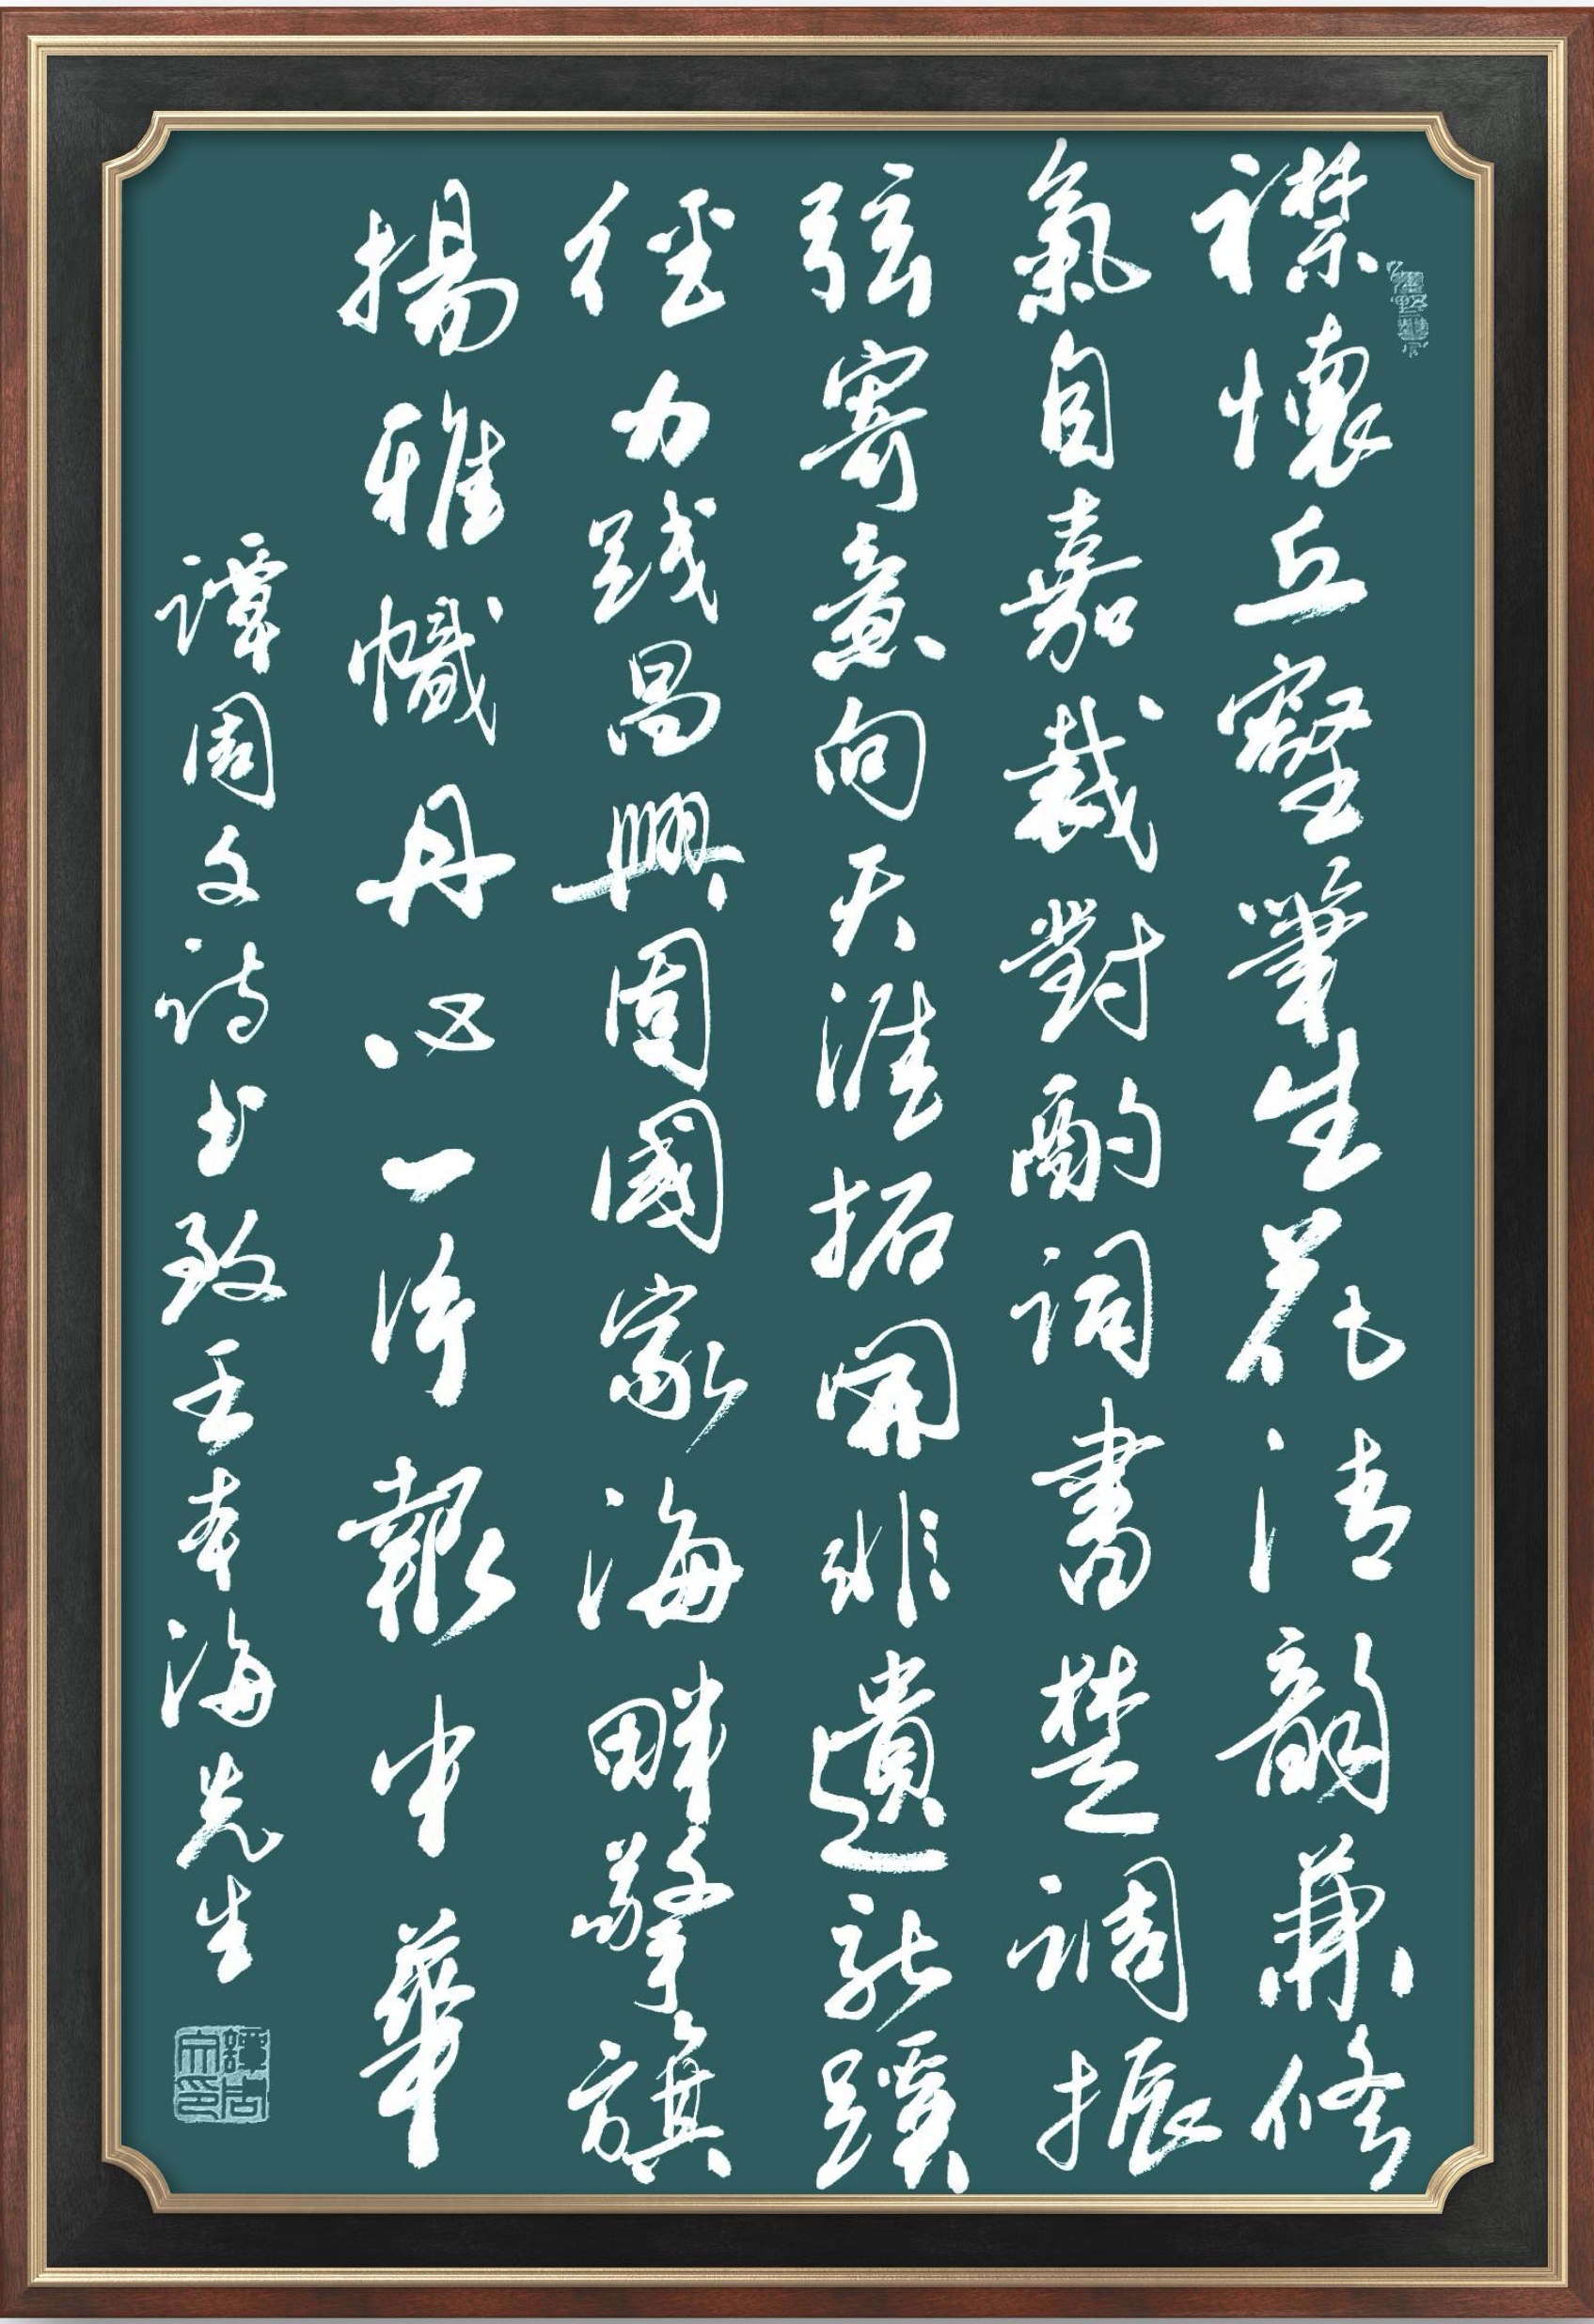 襟懷丘壑筆生花清韻兼修
氣自嘉裁對酌詞書楚調振
弦寄意向天涯拓開非遺新蹊
徑力践昌興固國家海畔擎旗
揚雅幟丹心一片報中華
譚周文诗书致王本海先生